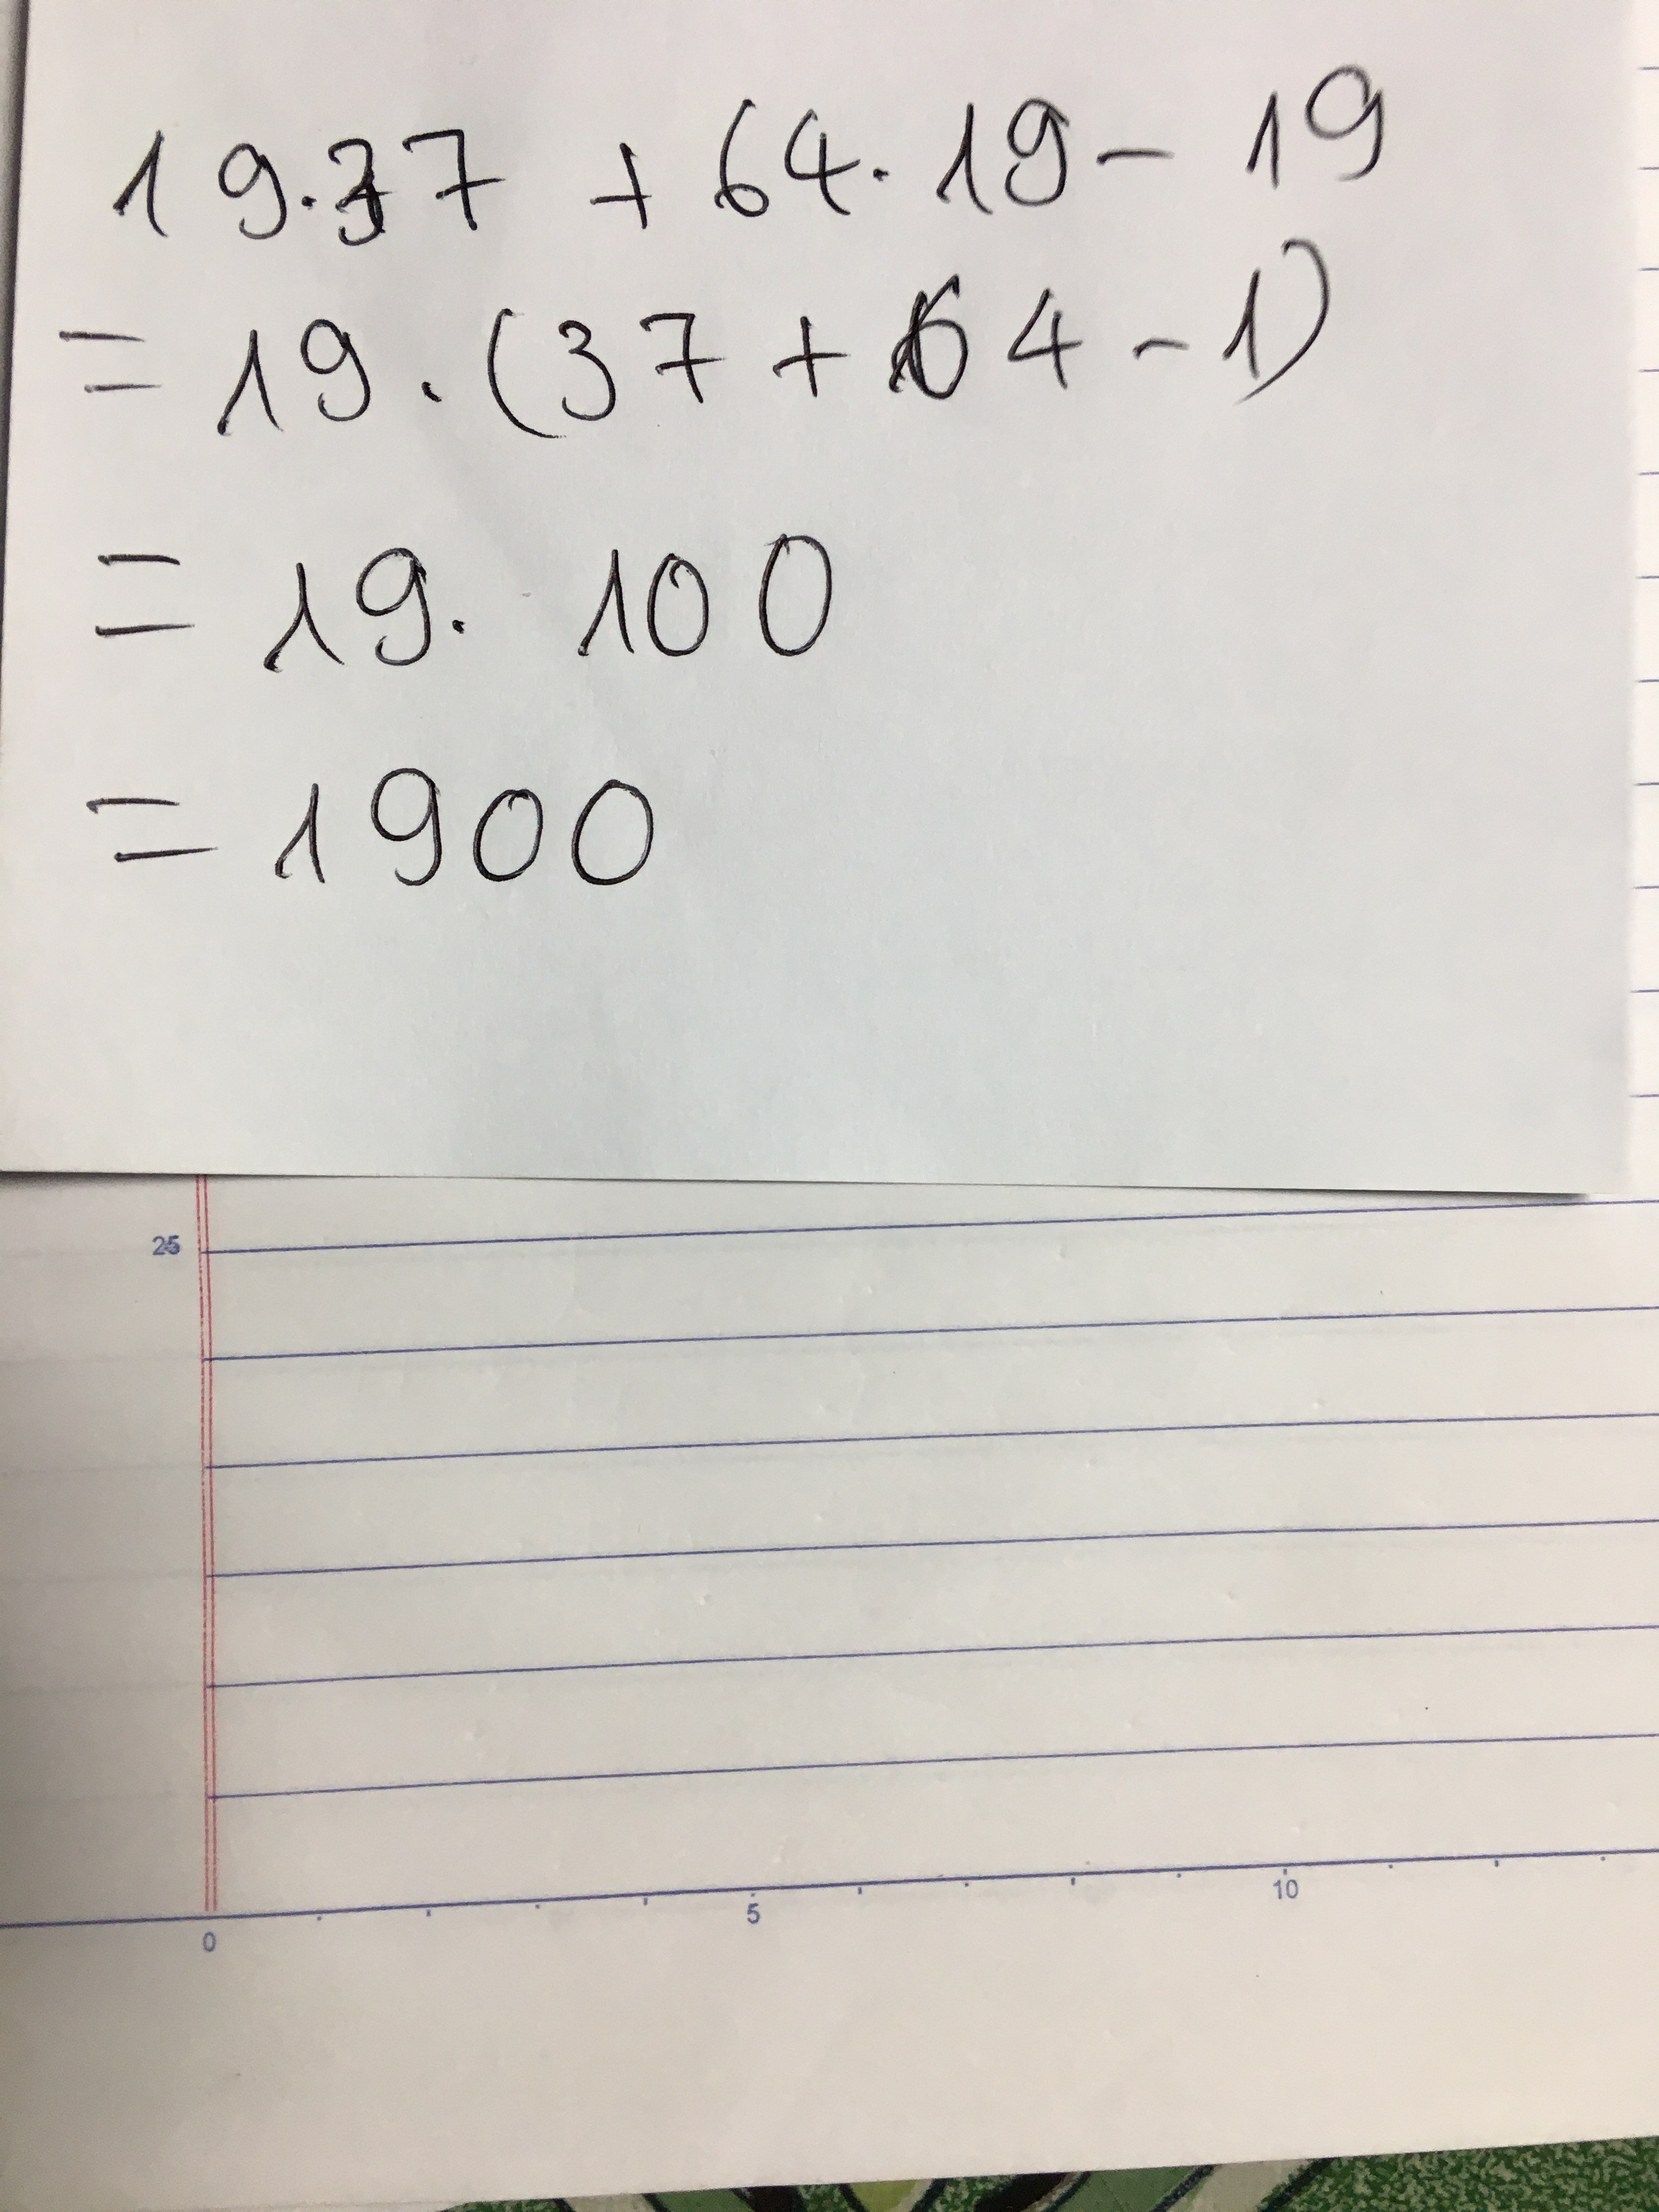 19.37 + 64.19 - 19
= 19.(37 + 64 - 1)
= 19. 100
= 1900
25
5
10
0